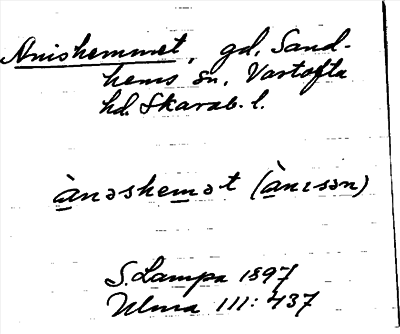 Anishemmet, gd, Sand-
hems sn, Vartofta
hd. Skarab. l.
ànəshemət (ànɪsən)
S. Lampa 1897
Ulma 111: 437